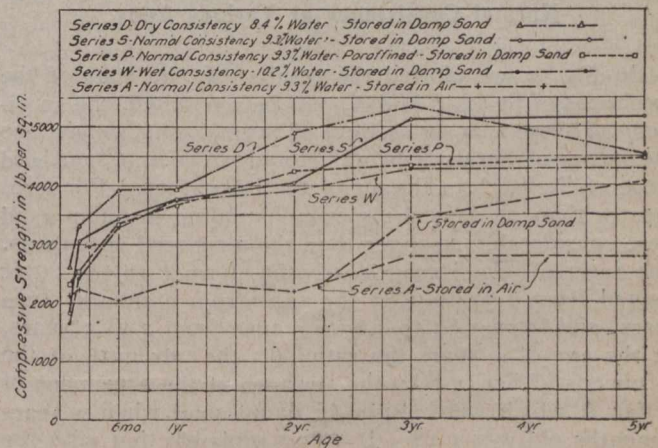 Series D-Dry Consistency 8.4% Water . Stored in Damp Sand
Series S-Normal Consistency 9.3% Water - Stored in Damp Sand
Series P-Normal Consistency 9.3% Water-Paraffined-Stored in Damp Sand
Series W-Wet Consistency-10.2% Water-Stored in Damp Sand
Series A-Normal Consistency 9.3% Water - Stored in Air
Compressive Strength in lb. per sq. in.
5000
4000
3000
2000
1000
0
Series D
Series S
Series P
Series W
Stored in Damp Sand
Series A-Stored in Air
6mo.
1yr
2yr
3yr
4yr
5yr
Age